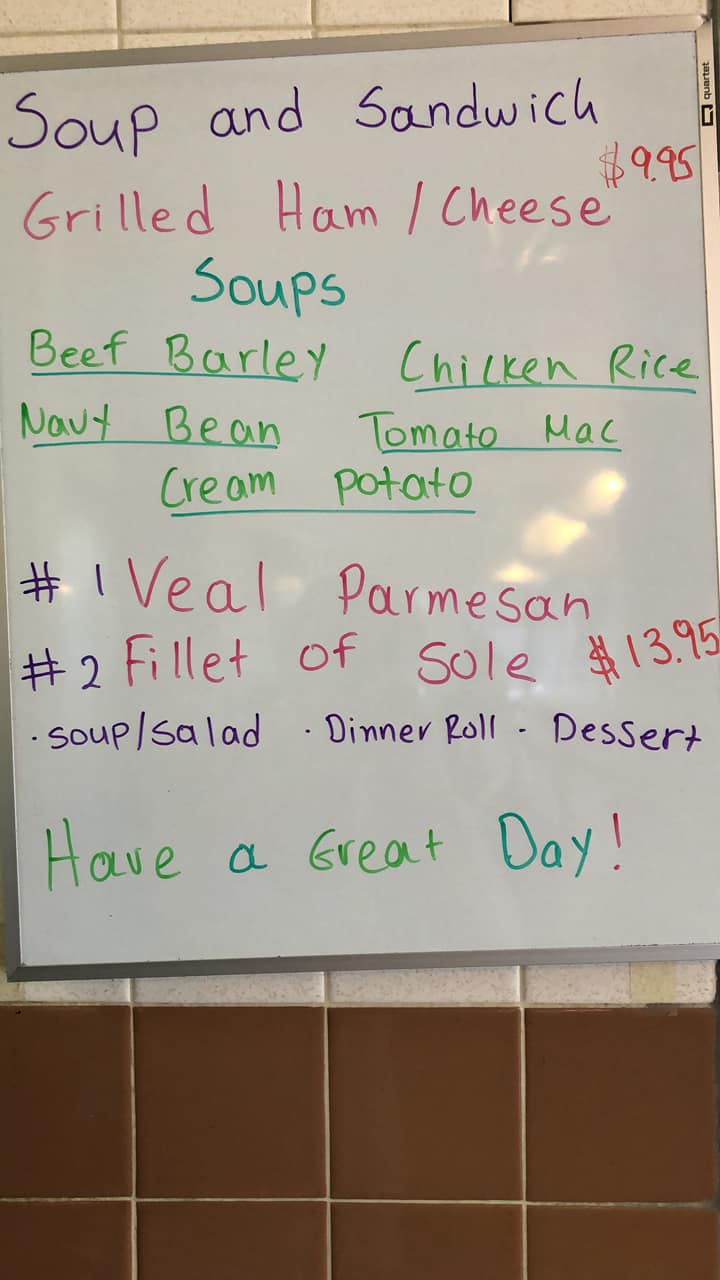 Soup and Sandwich
$9.95
Grilled Ham / Cheese
Soups
Beef Barley Chicken Rice
Navy Bean Tomato Mac
Cream Potato
# 1 Veal Parmesan
# 2 Fillet of Sole $13.95
· Soup/Salad · Dinner Roll - Dessert
Have a Great Day!
quartet